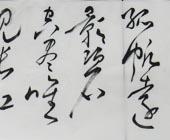 孤帆遠
影碧
空盡唯
見長江